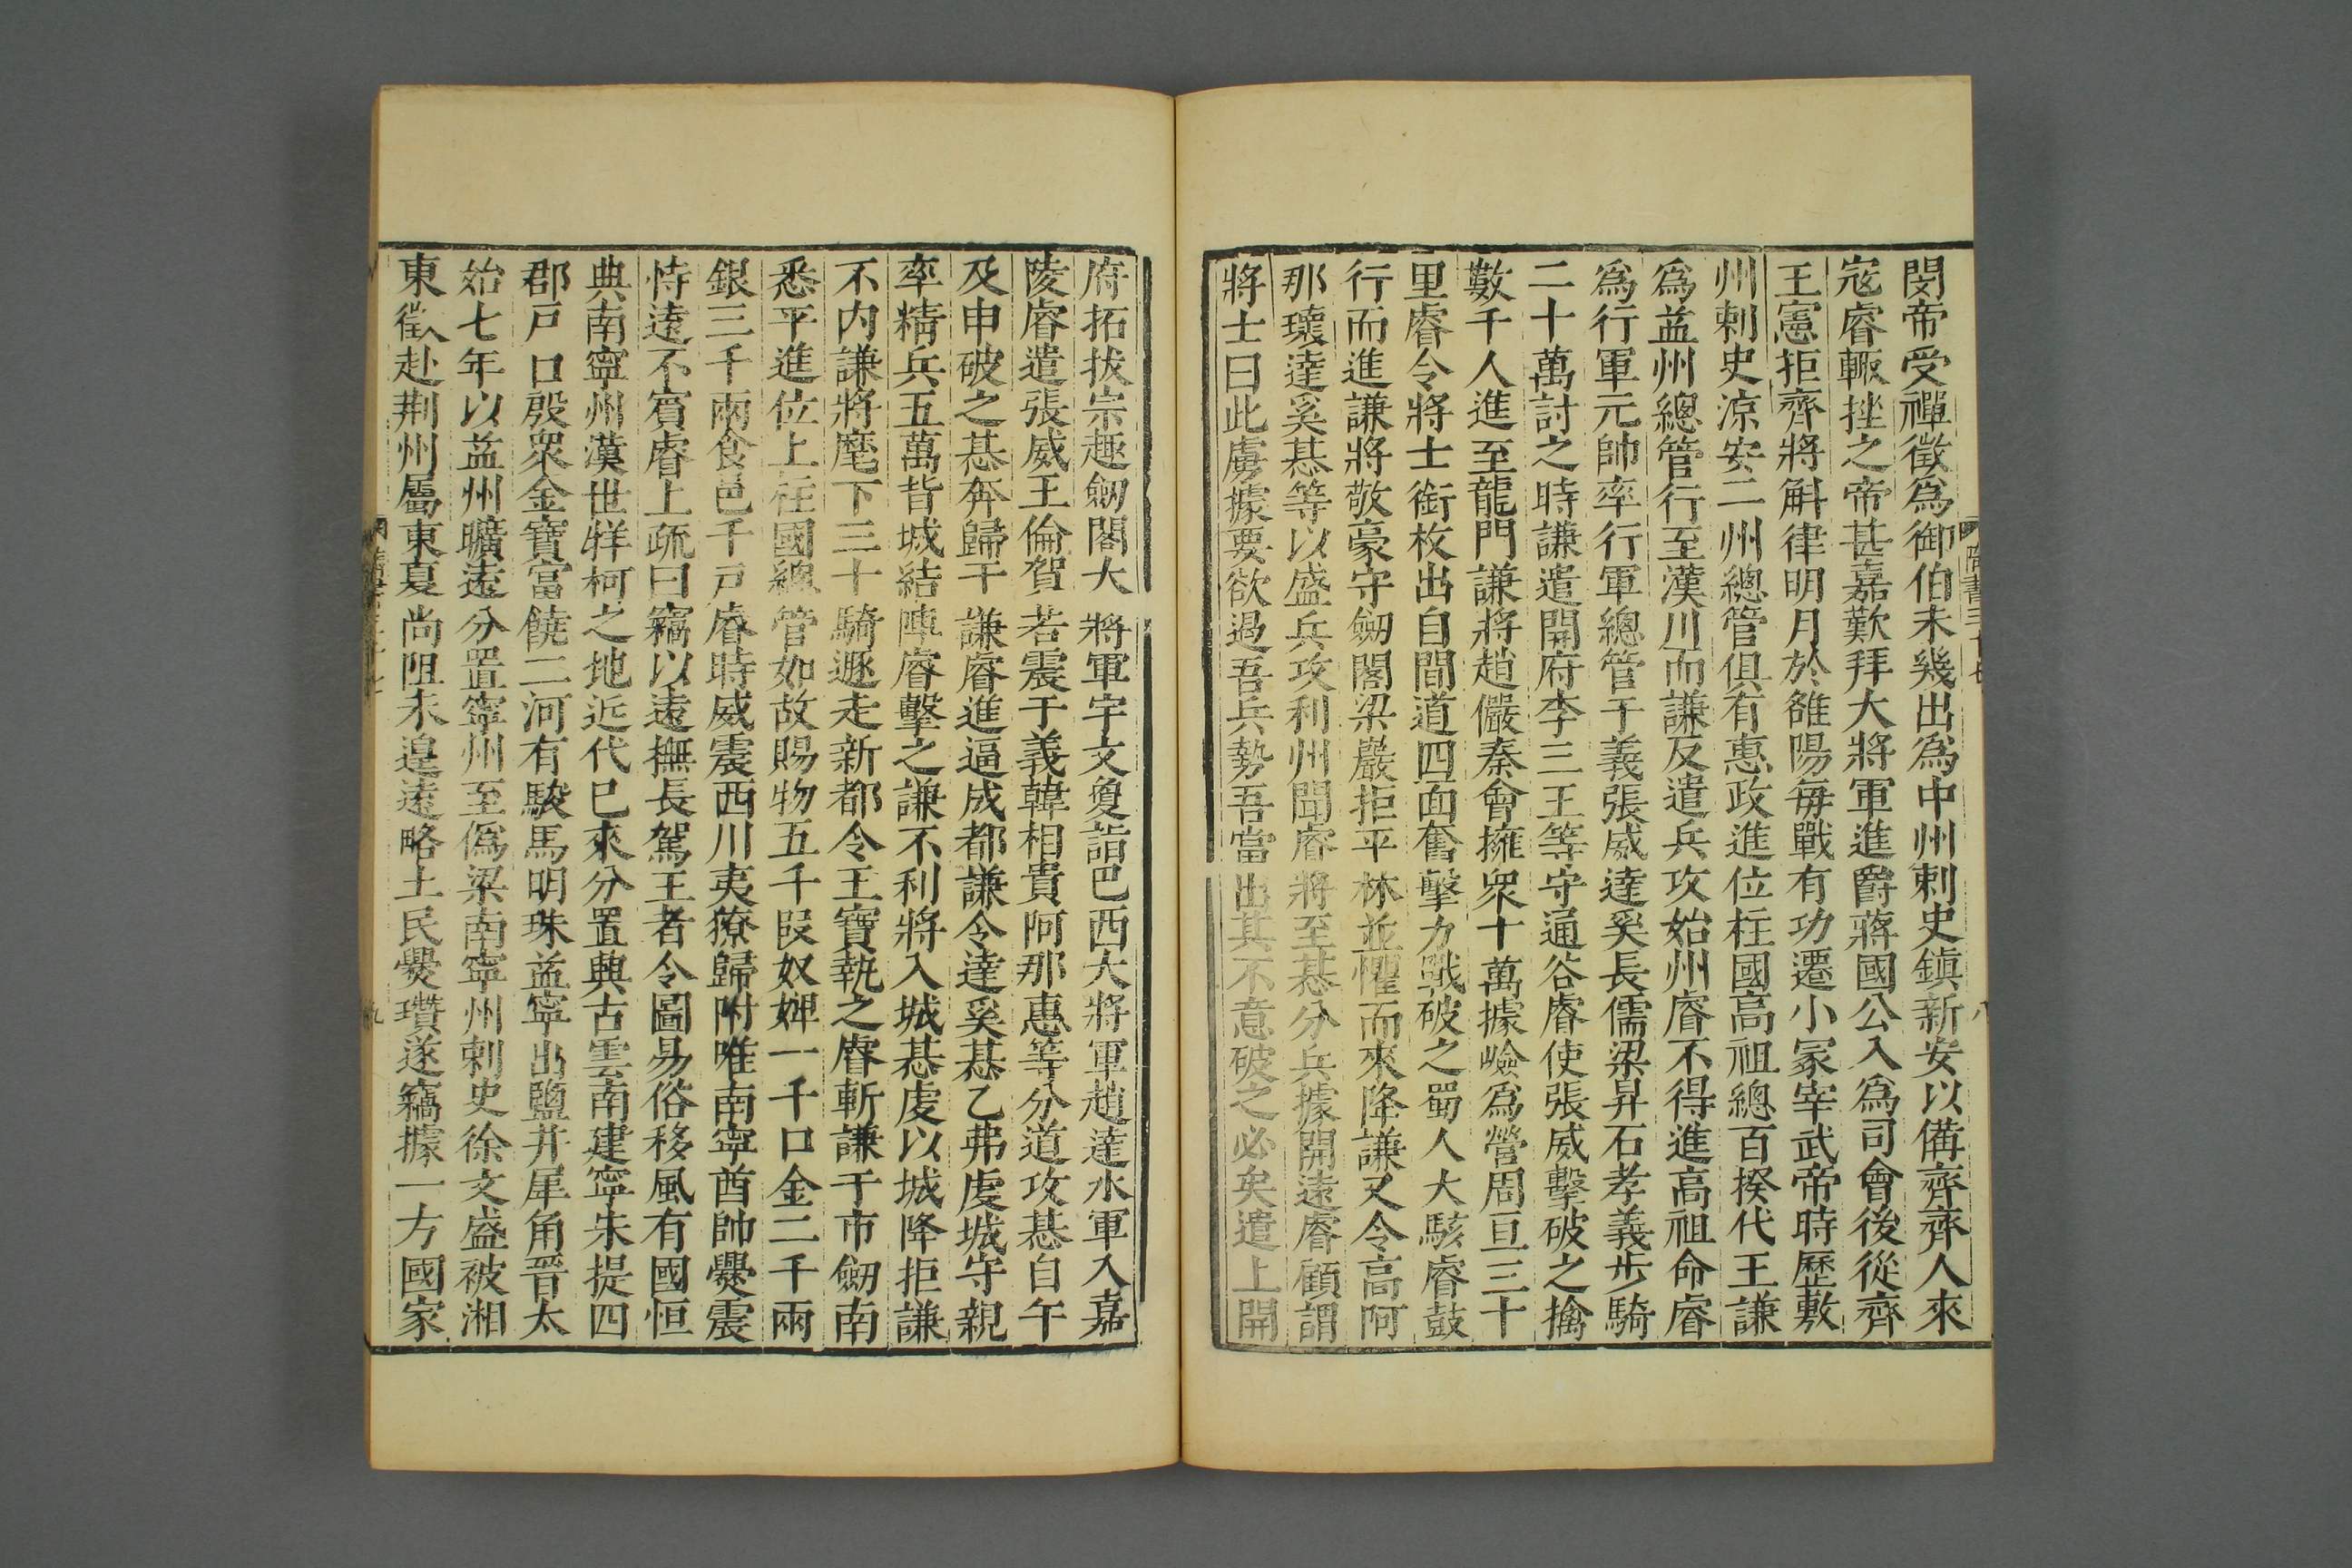 閔帝受禪徵爲御伯未幾出爲中州刺史鎮新安以備齊齊人來
寇睿輙挫之帝甚嘉歎拜大將軍進爵蔣國公入爲司會後從齊
王憲拒齊將斛律明月於雒陽每戰有功遷小冢宰武帝時歷敷
州刺史涼安二州總管俱有惠政進位柱國高祖總百揆代王謙
爲益州總管行至漢川而謙反遣兵攻始州睿不得進高祖命睿
爲行軍元帥率行軍總管于義張威達奚長儒梁昇石孝義步騎
二十萬討之時謙遣開府李三王等守通谷睿使張威擊破之擒
數千人進至龍門謙將趙儼秦會擁衆十萬據嶮爲營周亘三十
里睿令將士銜枚出自間道四面奮擊力戰破之蜀人大駭睿鼓
行而進謙將敬豪守劒閣梁巖拒平林並懼而來降謙又令高阿
那瓌達奚惎等以盛兵攻利州聞睿將至惎分兵據開遠睿顧謂
將士曰此虜據要欲遏吾兵勢吾當出其不意破之必矣遣上開
府拓拔宗趣劒閣大將軍宇文夐詣巴西大將軍趙達水軍入嘉
陵睿遣張威王倫賀若震于義韓相貴阿那惠等分道攻惎自午
及申破之惎奔歸于謙睿進逼成都謙令達奚惎乙弗虔城守親
率精兵五萬背城結陣睿擊之謙不利將入城惎虔以城降拒謙
不内謙將麾下三十騎遯走新都令王寶執之睿斬謙于市劒南
悉平進位上柱國總管如故賜物五千段奴婢一千口金二千兩
銀三千兩食邑千戸睿時威震西川夷獠歸附唯南寧酋帥爨震
恃遠不賓睿上疏曰竊以遠撫長駕王者令圖易俗移風有國恒
典南寧州漢世牂柯之地近代已來分置興古雲南建寧朱提四
郡戸口殷衆金寶富饒二河有駿馬明珠益寧出鹽井犀角晉太
始七年以益州曠遠分置寧州至僞梁南寧州刺史徐文盛被湘
東徵赴荆州屬東夏尚阻未遑遠略土民爨瓚遂竊據一方國家